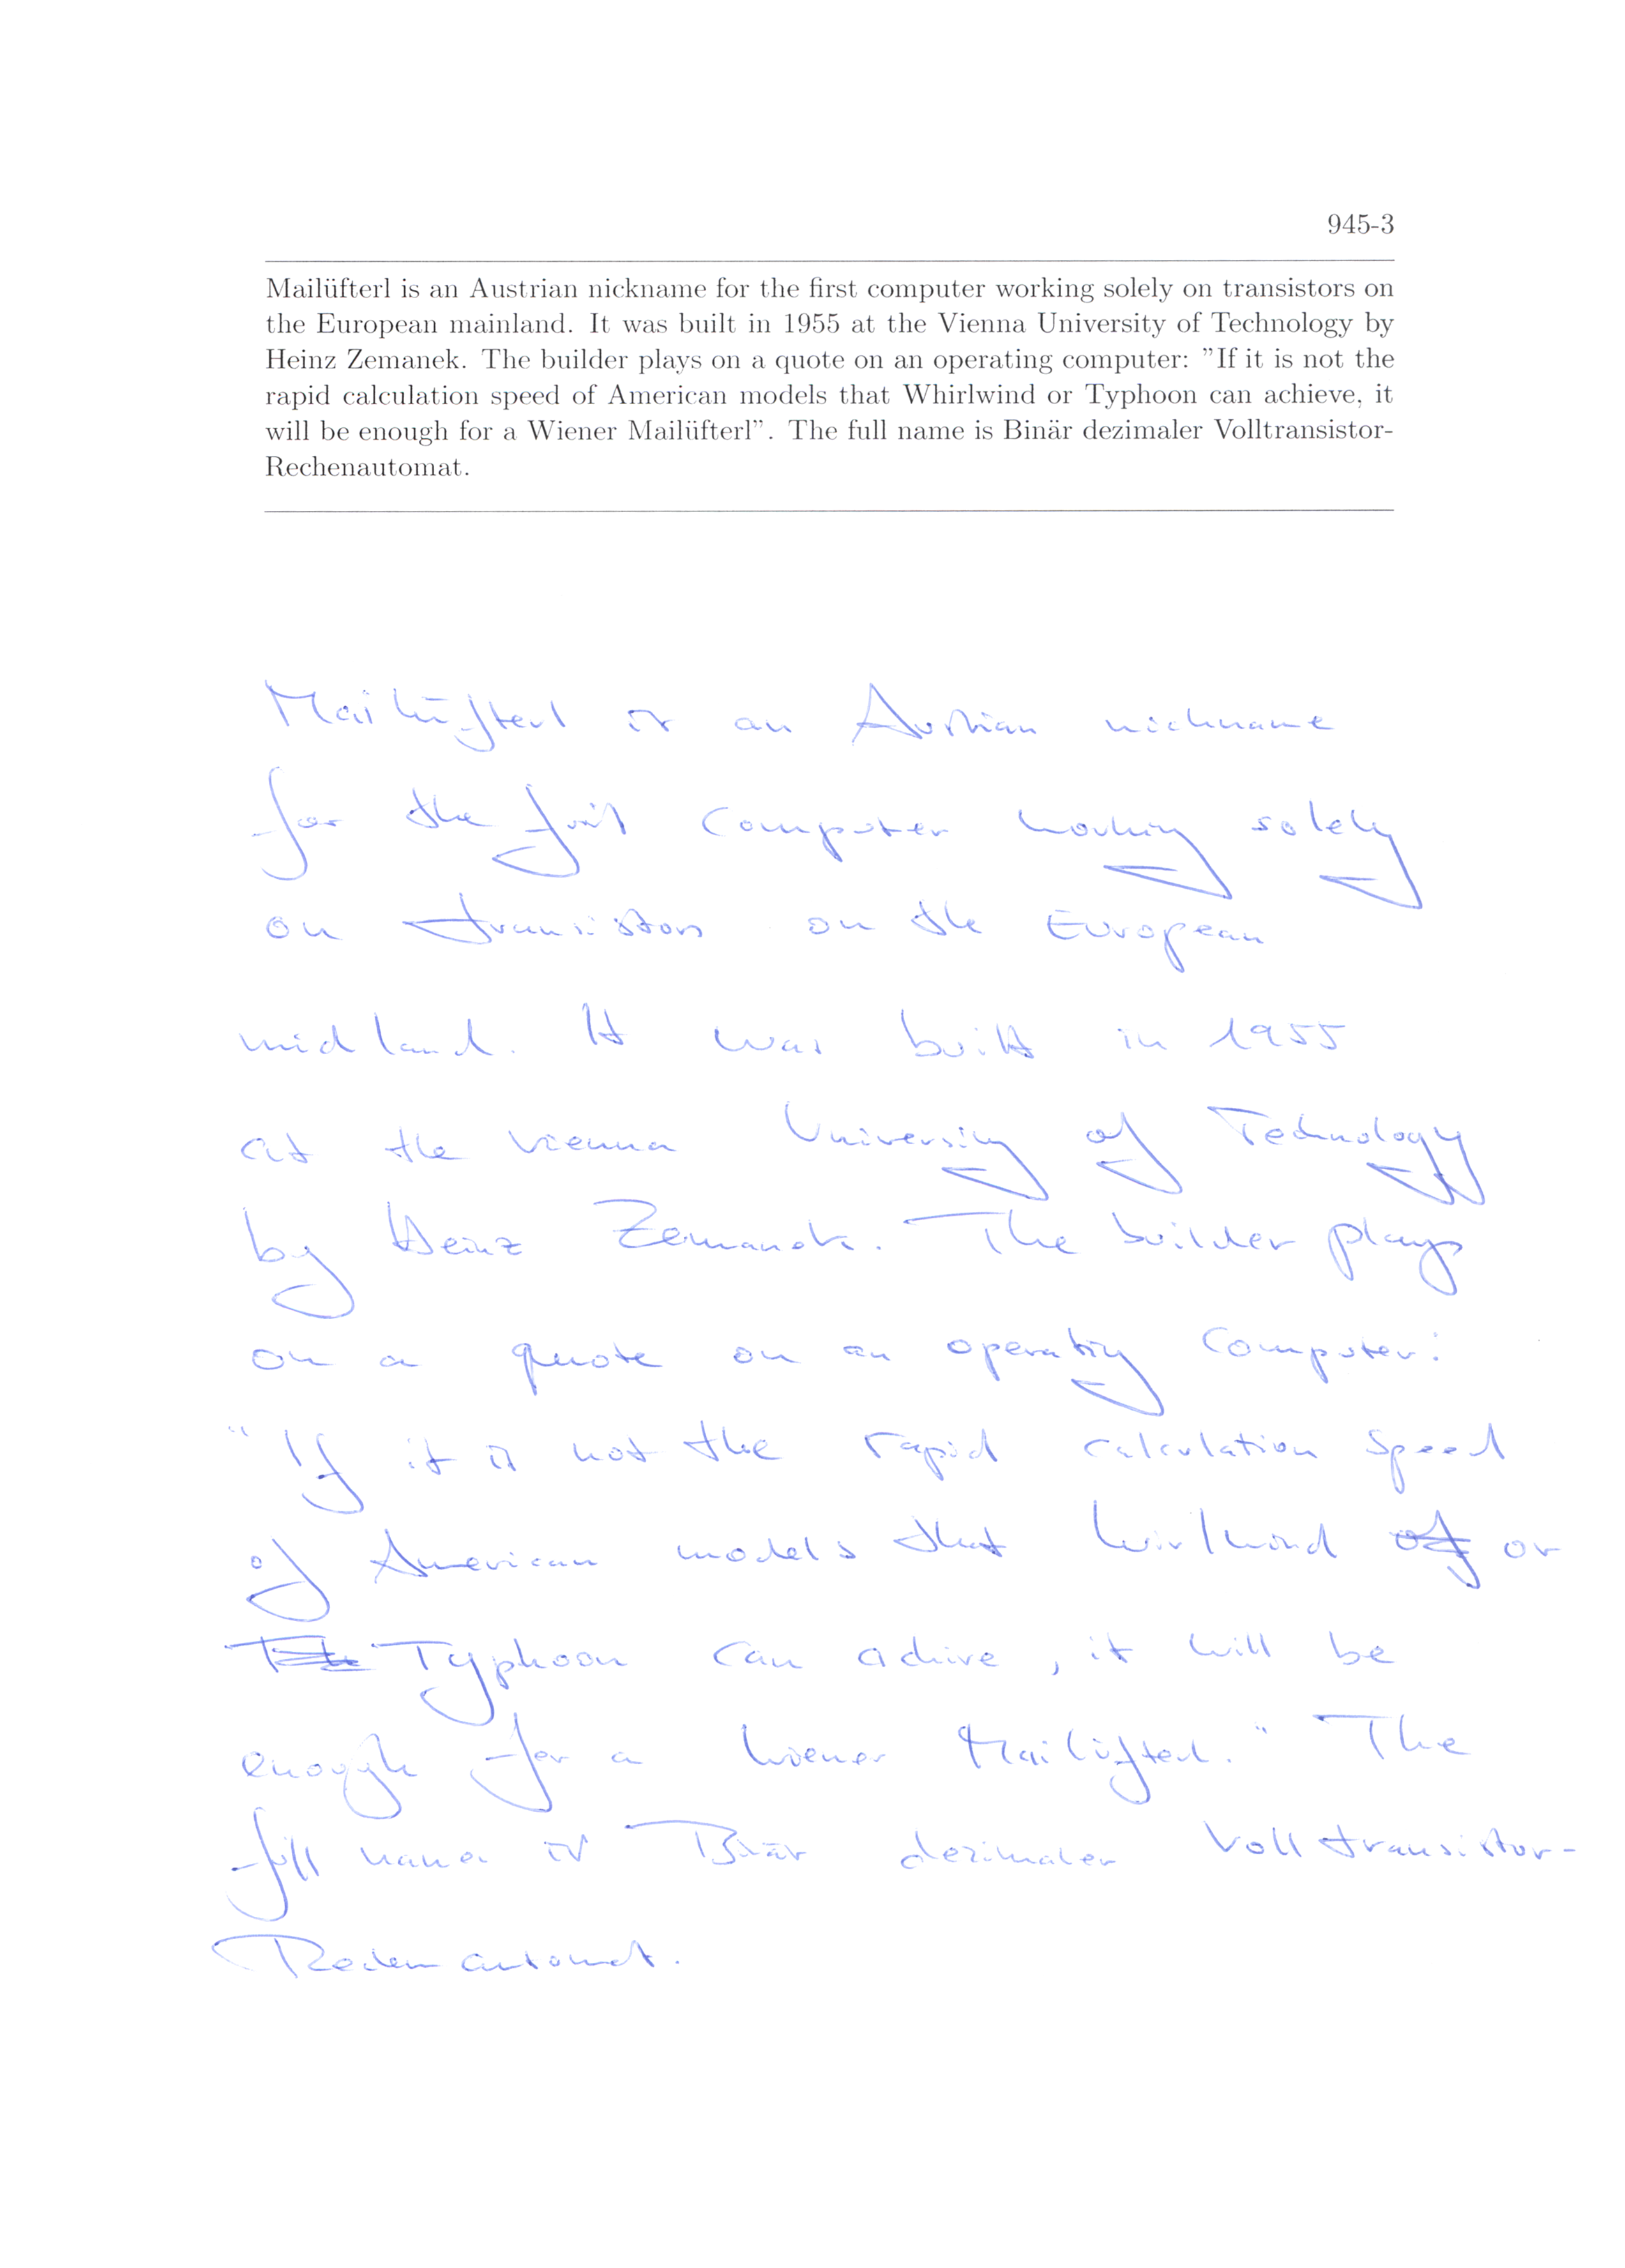 945-3
Mailüfterl is an Austrian nickname for the first computer working solely on transistors on
the European mainland. It was built in 1955 at the Vienna University of Technology by
Heinz Zemanek. The builder plays on a quote on an operating computer: "If it is not the
rapid calculation speed of American models that Whirlwind or Typhoon can achieve, it
will be enough for a Wiener Mailüfterl". The full name is Binär dezimaler Volltransistor-
Rechenautomat.
Mailüfterl is an Austrian nickname
for the first computer working solely
on transistors on the European
midland. It was built in 1955
at the Vienna University of Technology
by Heinz Zemanek. The builder plays
on a quote on an operating computer:
"If it is not the rapid calculation speed
of American models that Wirlwind of or
Typhoon can achive, it will be
enough for a Wiener Mailüfterl." The
full name is Binär dezimaler Volltransistor-
Rechenautomat.